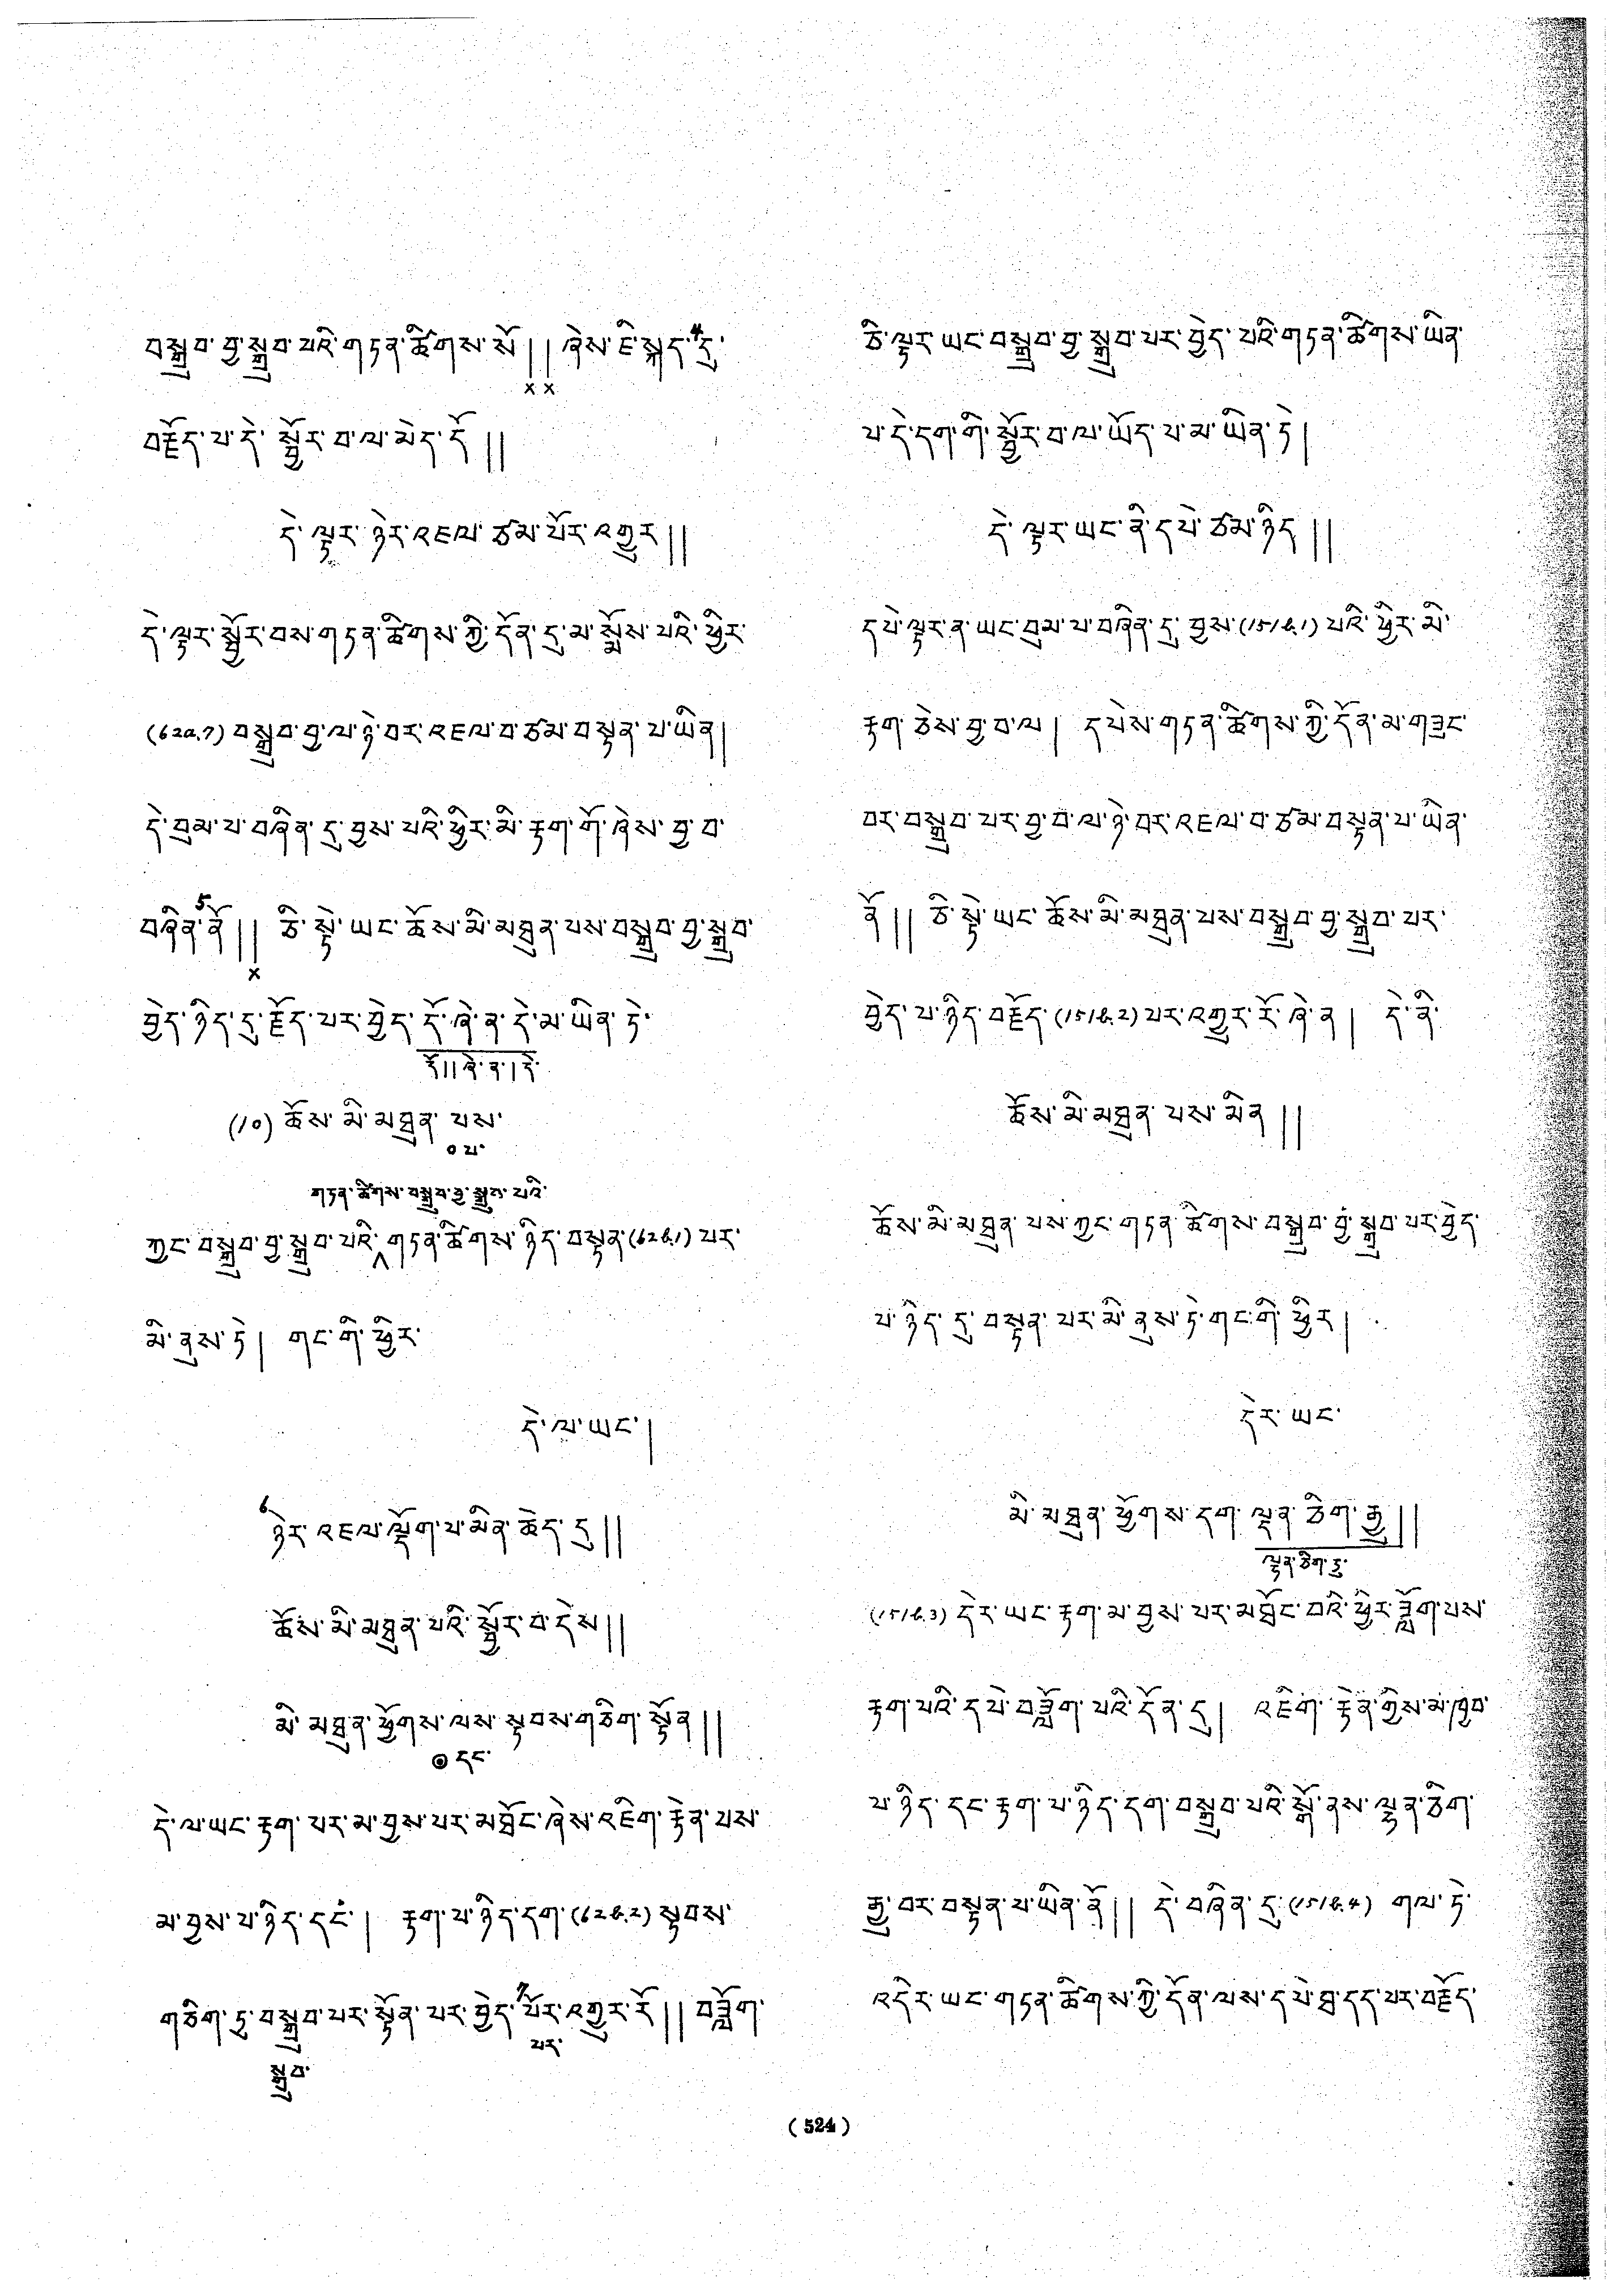 བསྒྲུབ་བྱ་སྒྲུབ་པའི་གཏན་ཚིགས་སོ།། ཞེས་ཇི་སྐད་4དུ་
x x
བརྗོད་པ་དེ་སྦྱོར་བ་ལ་མེད་དོ།།
དེ་ལྟར་ཉེར་འཇལ་ཙམ་པོར་འགྱུར།།
དེ་ལྟར་སྦྱོར་བས་གཏན་ཚིགས་ཀྱི་དོན་དུ་མ་སྨོས་པའི་ཕྱིར་
(62a.7) བསྒྲུབ་བྱ་ལ་ཉེ་བར་འཇལ་བ་ཙམ་བསྟན་པ་ཡིན།
དེ་བུམ་པ་བཞིན་དུ་བྱས་པའི་ཕྱིར་མི་རྟག་གོ་ཞེས་བྱ་བ་
བཞིན་5ནོ།། ཅི་སྟེ་ཡང་ཆོས་མི་མཐུན་པས་བསྒྲུབ་བྱ་སྒྲུབ་
x
བྱེད་ཉིད་དུ་རྗོད་པར་བྱེད་དོ་ཞེ་ན་དེ་མ་ཡིན་ཏེ་
དོ།།ཞེ་ན།དེ་
(10) ཆོས་མི་མཐུན་པས་
० པ་
གཏན་ཚིགས་བསྒྲུབ་བྱ་སྒྲུབ་པའི་
ཀྱང་བསྒྲུབ་བྱ་སྒྲུབ་པའི་གཏན་ཚིགས་ཉིད་བསྟན་(62b.1) པར་
མི་ནུས་ཏེ། གང་གི་ཕྱིར་
དེ་ལ་ཡང་།
6ཉེར་འཇལ་ལྡོག་པ་མིན་ཆེད་དུ།།
ཆོས་མི་མཐུན་པའི་སྦྱོར་བ་དེས།།
མི་མཐུན་ཕྱོགས་ལས་སྟབས་གཅིག་སྟོན།།
◎ དང་
དེ་ལ་ཡང་རྟག་པར་མ་བྱས་པར་མཐོང་ཞེས་འཇིག་རྟེན་པས་
མ་བྱས་པ་ཉིད་དང་། རྟག་པ་ཉིད་དག་(62b.2) སྟབས་
གཅིག་ཏུ་བསྒྲུབ་པར་སྟོན་པར་བྱེད་7པོར་འགྱུར་རོ།། བཟློག་
པར་
སྒྲུབ་
ཅི་ལྟར་ཡང་བསྒྲུབ་བྱ་སྒྲུབ་པར་བྱེད་པའི་གཏན་ཚིགས་ཡིན་
པ་དེ་དག་གི་སྦྱོར་བ་ལ་ཡོད་པ་མ་ཡིན་ཏེ།
དེ་ལྟར་ཡང་ནི་དཔེ་ཙམ་ཉིད།།
དཔེ་ལྟར་ན་ཡང་བུམ་པ་བཞིན་དུ་བྱས་(151b.1) པའི་ཕྱིར་མི་
རྟག་ཅེས་བྱ་བ་ལ། དཔེས་གཏན་ཚིགས་ཀྱི་དོན་མ་གཟུང་
བར་བསྒྲུབ་པར་བྱ་བ་ལ་ཉེ་བར་འཇལ་བ་ཙམ་བསྟན་པ་ཡིན་
ནོ།། ཅི་སྟེ་ཡང་ཆོས་མི་མཐུན་པས་བསྒྲུབ་བྱ་སྒྲུབ་པར་
བྱེད་པ་ཉིད་བརྗོད་(151b.2) པར་འགྱུར་རོ་ཞེ་ན། དེ་ནི་
ཆོས་མི་མཐུན་པས་མིན།།
ཆོས་མི་མཐུན་པས་ཀྱང་གཏན་ཚིགས་བསྒྲུབ་བྱ་སྒྲུབ་པར་བྱེད་
པ་ཉིད་དུ་བསྟན་པར་མི་ནུས་ཏེ་གང་གི་ཕྱིར།
དེར་ཡང་
མི་མཐུན་ཕྱོགས་དག་ལྡན་ཅིག་རྒྱུ།།
ལྷན་ཅིག་ཏུ་
(151b.3) དེར་ཡང་རྟག་མ་བྱས་པར་མཐོང་བའི་ཕྱིར་ཟློག་པས་
རྟག་པའི་དཔེ་བཟློག་པའི་དོན་དུ། འཇིག་རྟེན་གྱིས་མ་ཁྱབ་
པ་ཉིད་དང་རྟག་པ་ཉིད་དག་བསྒྲུབ་པའི་སྒོ་ནས་ལྷན་ཅིག་
རྒྱུ་བར་བསྟན་པ་ཡིན་ནོ།། དེ་བཞིན་དུ་(151b.4) གལ་ཏེ་
འདིར་ཡང་གཏན་ཚིགས་ཀྱི་དོན་ལས་དཔེ་ཐ་དད་པར་བརྗོད་
(524)